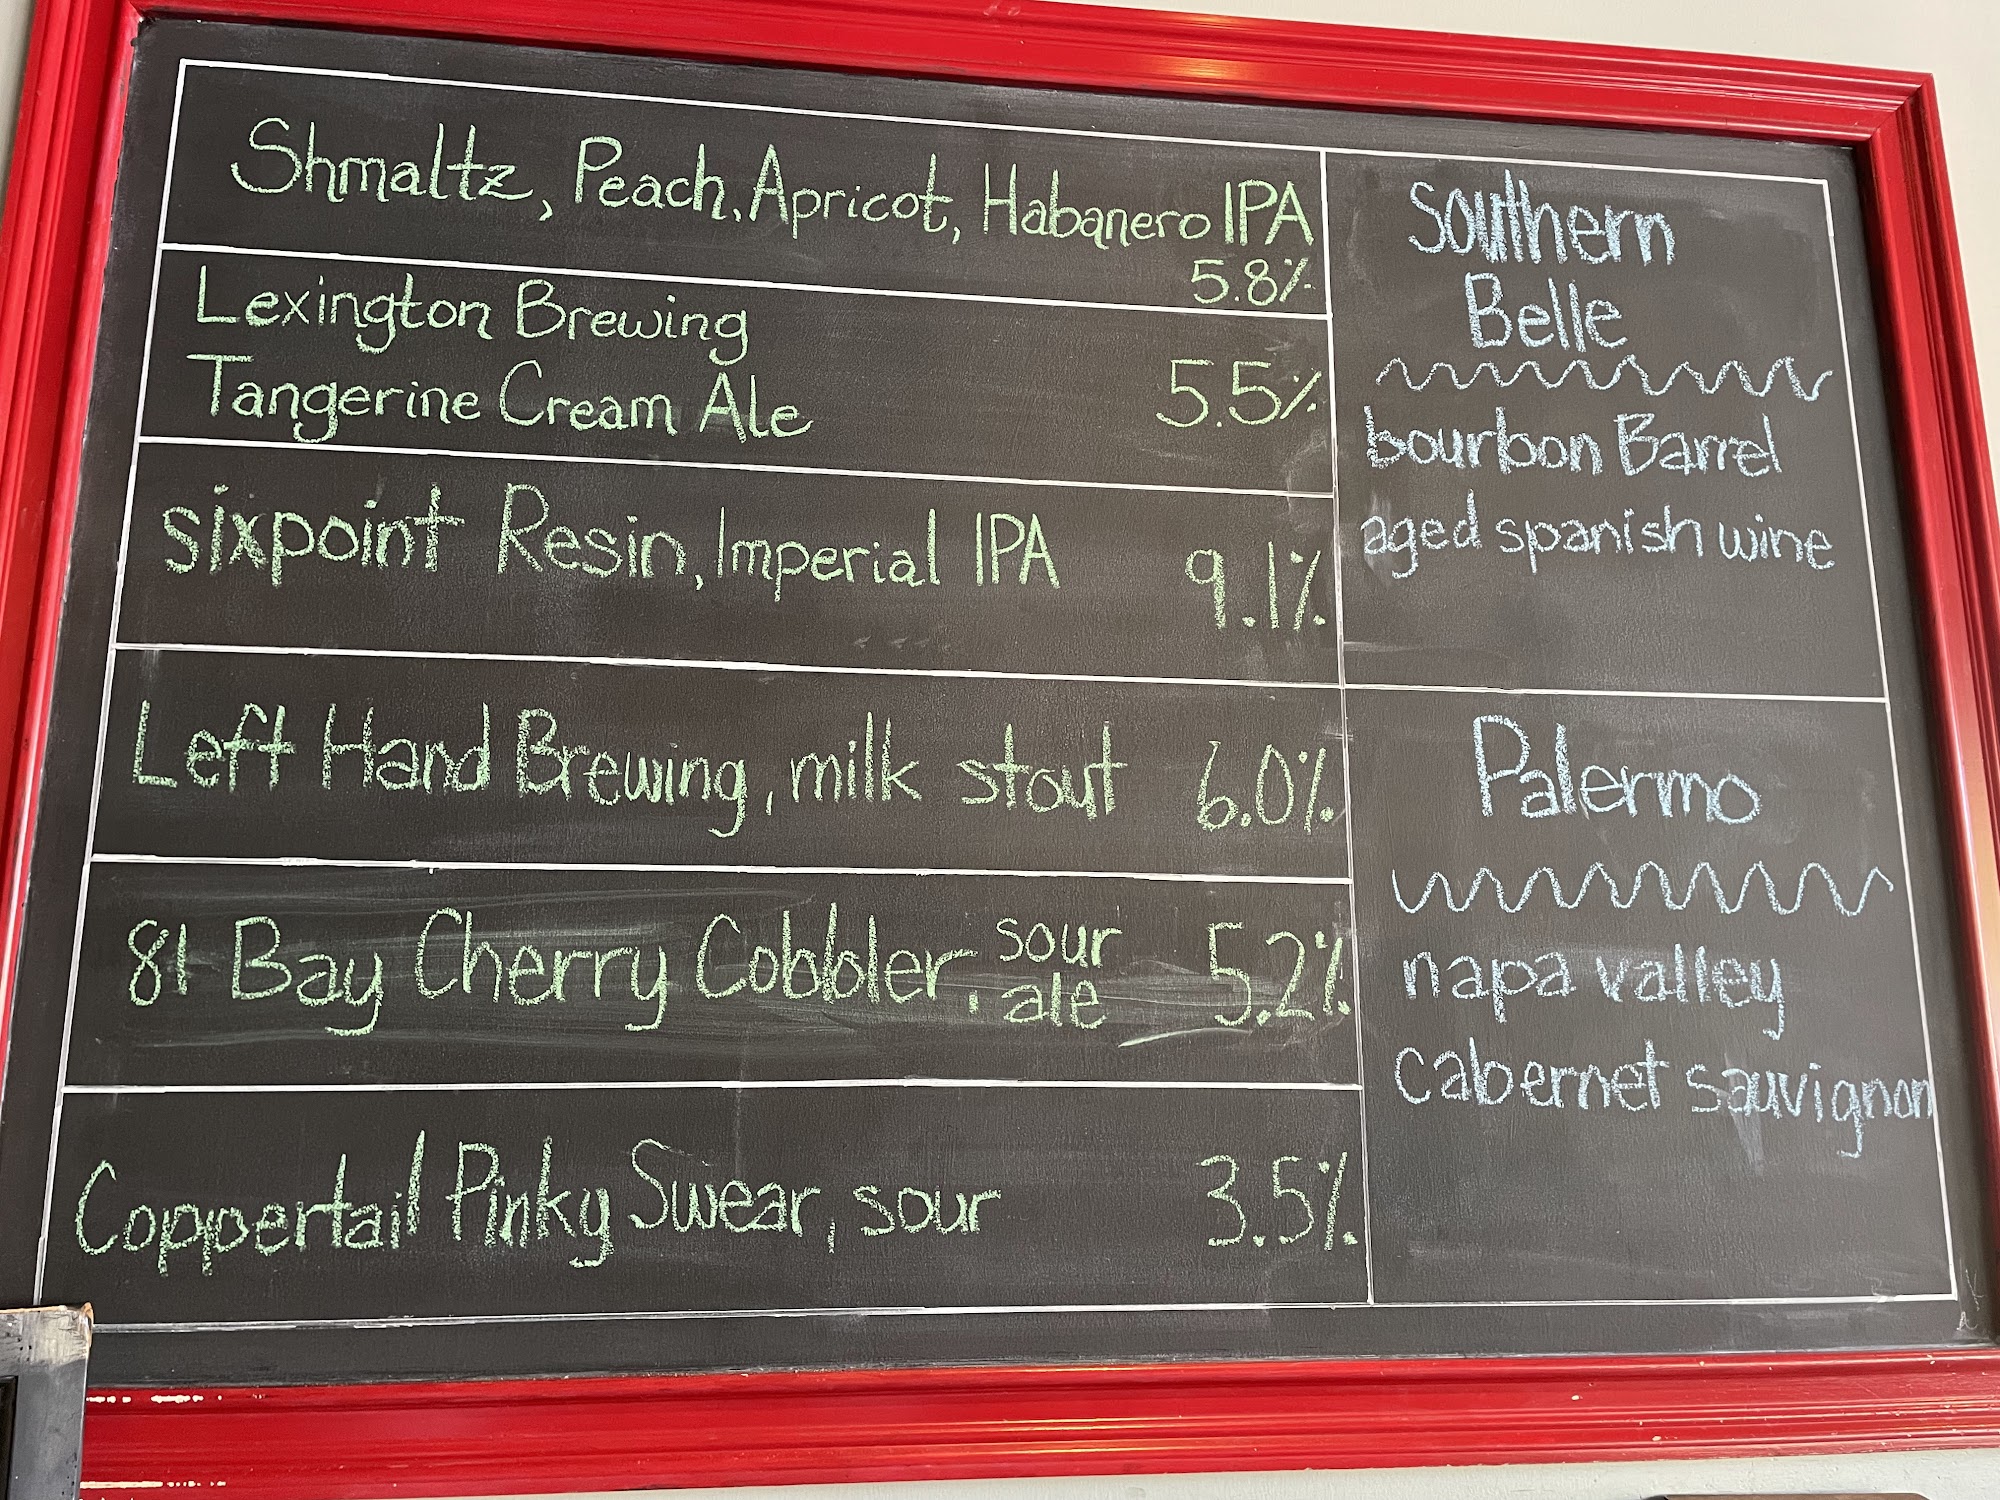 Shmaltz, Peach, Apricot, Habanero IPA
5.8%
Lexington Brewing
Tangerine Cream Ale 5.5%
sixpoint Resin, Imperial IPA 9.1%
Left Hand Brewing, milk stout 6.0%
81 Bay Cherry Cobbler, sour
ale 5.2%
Coppertail Pinky Swear, sour 3.5%
Southern
Belle
bourbon Barrel
aged spanish wine
Palermo
napa valley
cabernet sauvignon